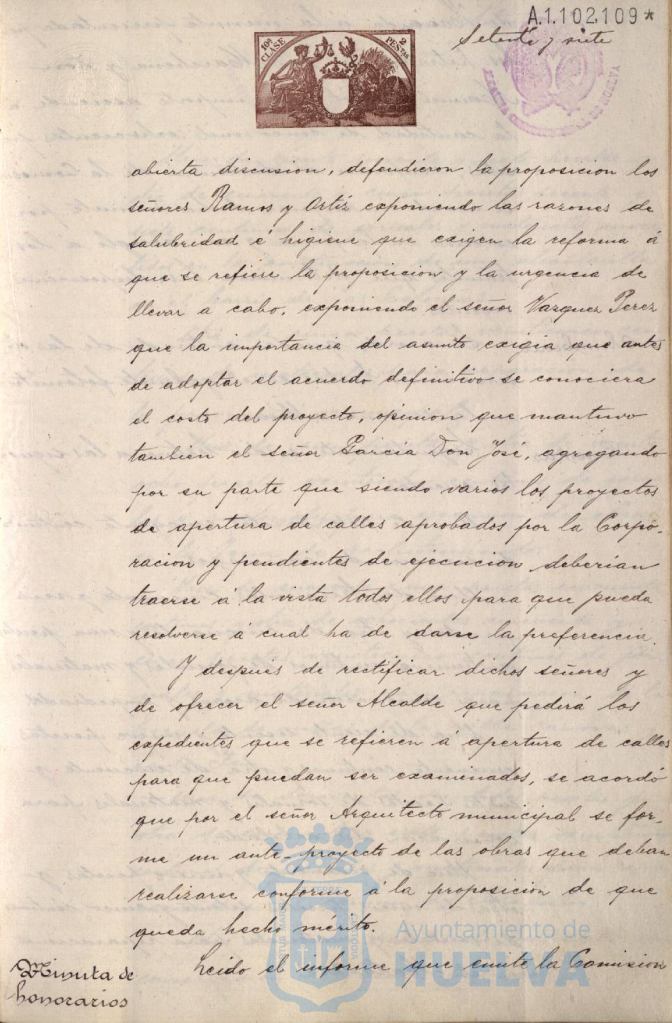 A.1.102.109*
Setenta y siete
10ª CLASE
2 PESETAS
abierta discusion, defendieron la proposicion los
señores Ramos y Ortiz exponiendo las razones de
salubridad é higiene que exigen la reforma á
que se refiere la proposicion y la urgencia de
llevar á cabo, exponiendo el señor Vazquez Perez
que la importancia del asunto exigia que antes
de adoptar el acuerdo definitivo se conociera
el costo del proyecto, opinion que mantuvo
tambien el señor Garcia Don José, agregando
por su parte que siendo varios los proyectos
de apertura de calles aprobados por la Corpo-
racion y pendientes de ejecucion deberian
traerse á la vista todos ellos para que pueda
resolverse á cual ha de darse la preferencia.
Y después de rectificar dichos señores y
de ofrecer el señor Alcalde que pedirá los
expedientes que se refieren á apertura de calles
para que puedan ser examinados, se acordó
que por el señor Arquitecto municipal se for-
me un ante-proyecto de las obras que deban
realizarse conforme á la proposición de que
queda hecho mérito.
Minuta de
honorarios
Leido el informe que emite la Comision
Ayuntamiento de
HUELVA